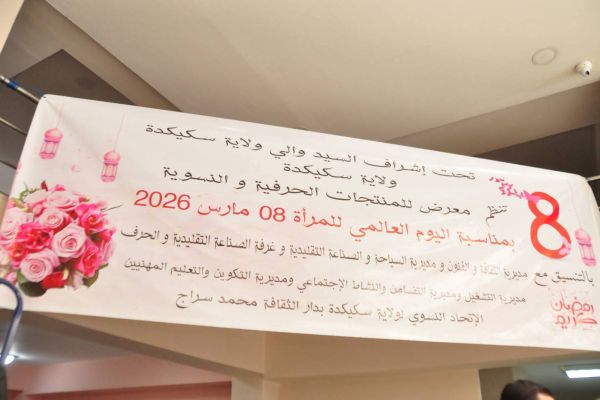 تحت إشراف السيد والي ولاية سكيكدة
ولاية سكيكدة
تنظم معرض للمنتجات الحرفية و النسوية
بمناسبة اليوم العالمي للمرأة 08 مارس 2026
بالتنسيق مع مديرية الثقافة و الفنون و مديرية السياحة و الصناعة التقليدية و غرفة الصناعة التقليدية و الحرف
مديرية التشغيل ومديرية التضامن والنشاط الإجتماعي ومديرية التكوين والتعليم المهنيين
الإتحاد النسوي لولاية سكيكدة بدار الثقافة محمد سراج
8
رمضان
كريم